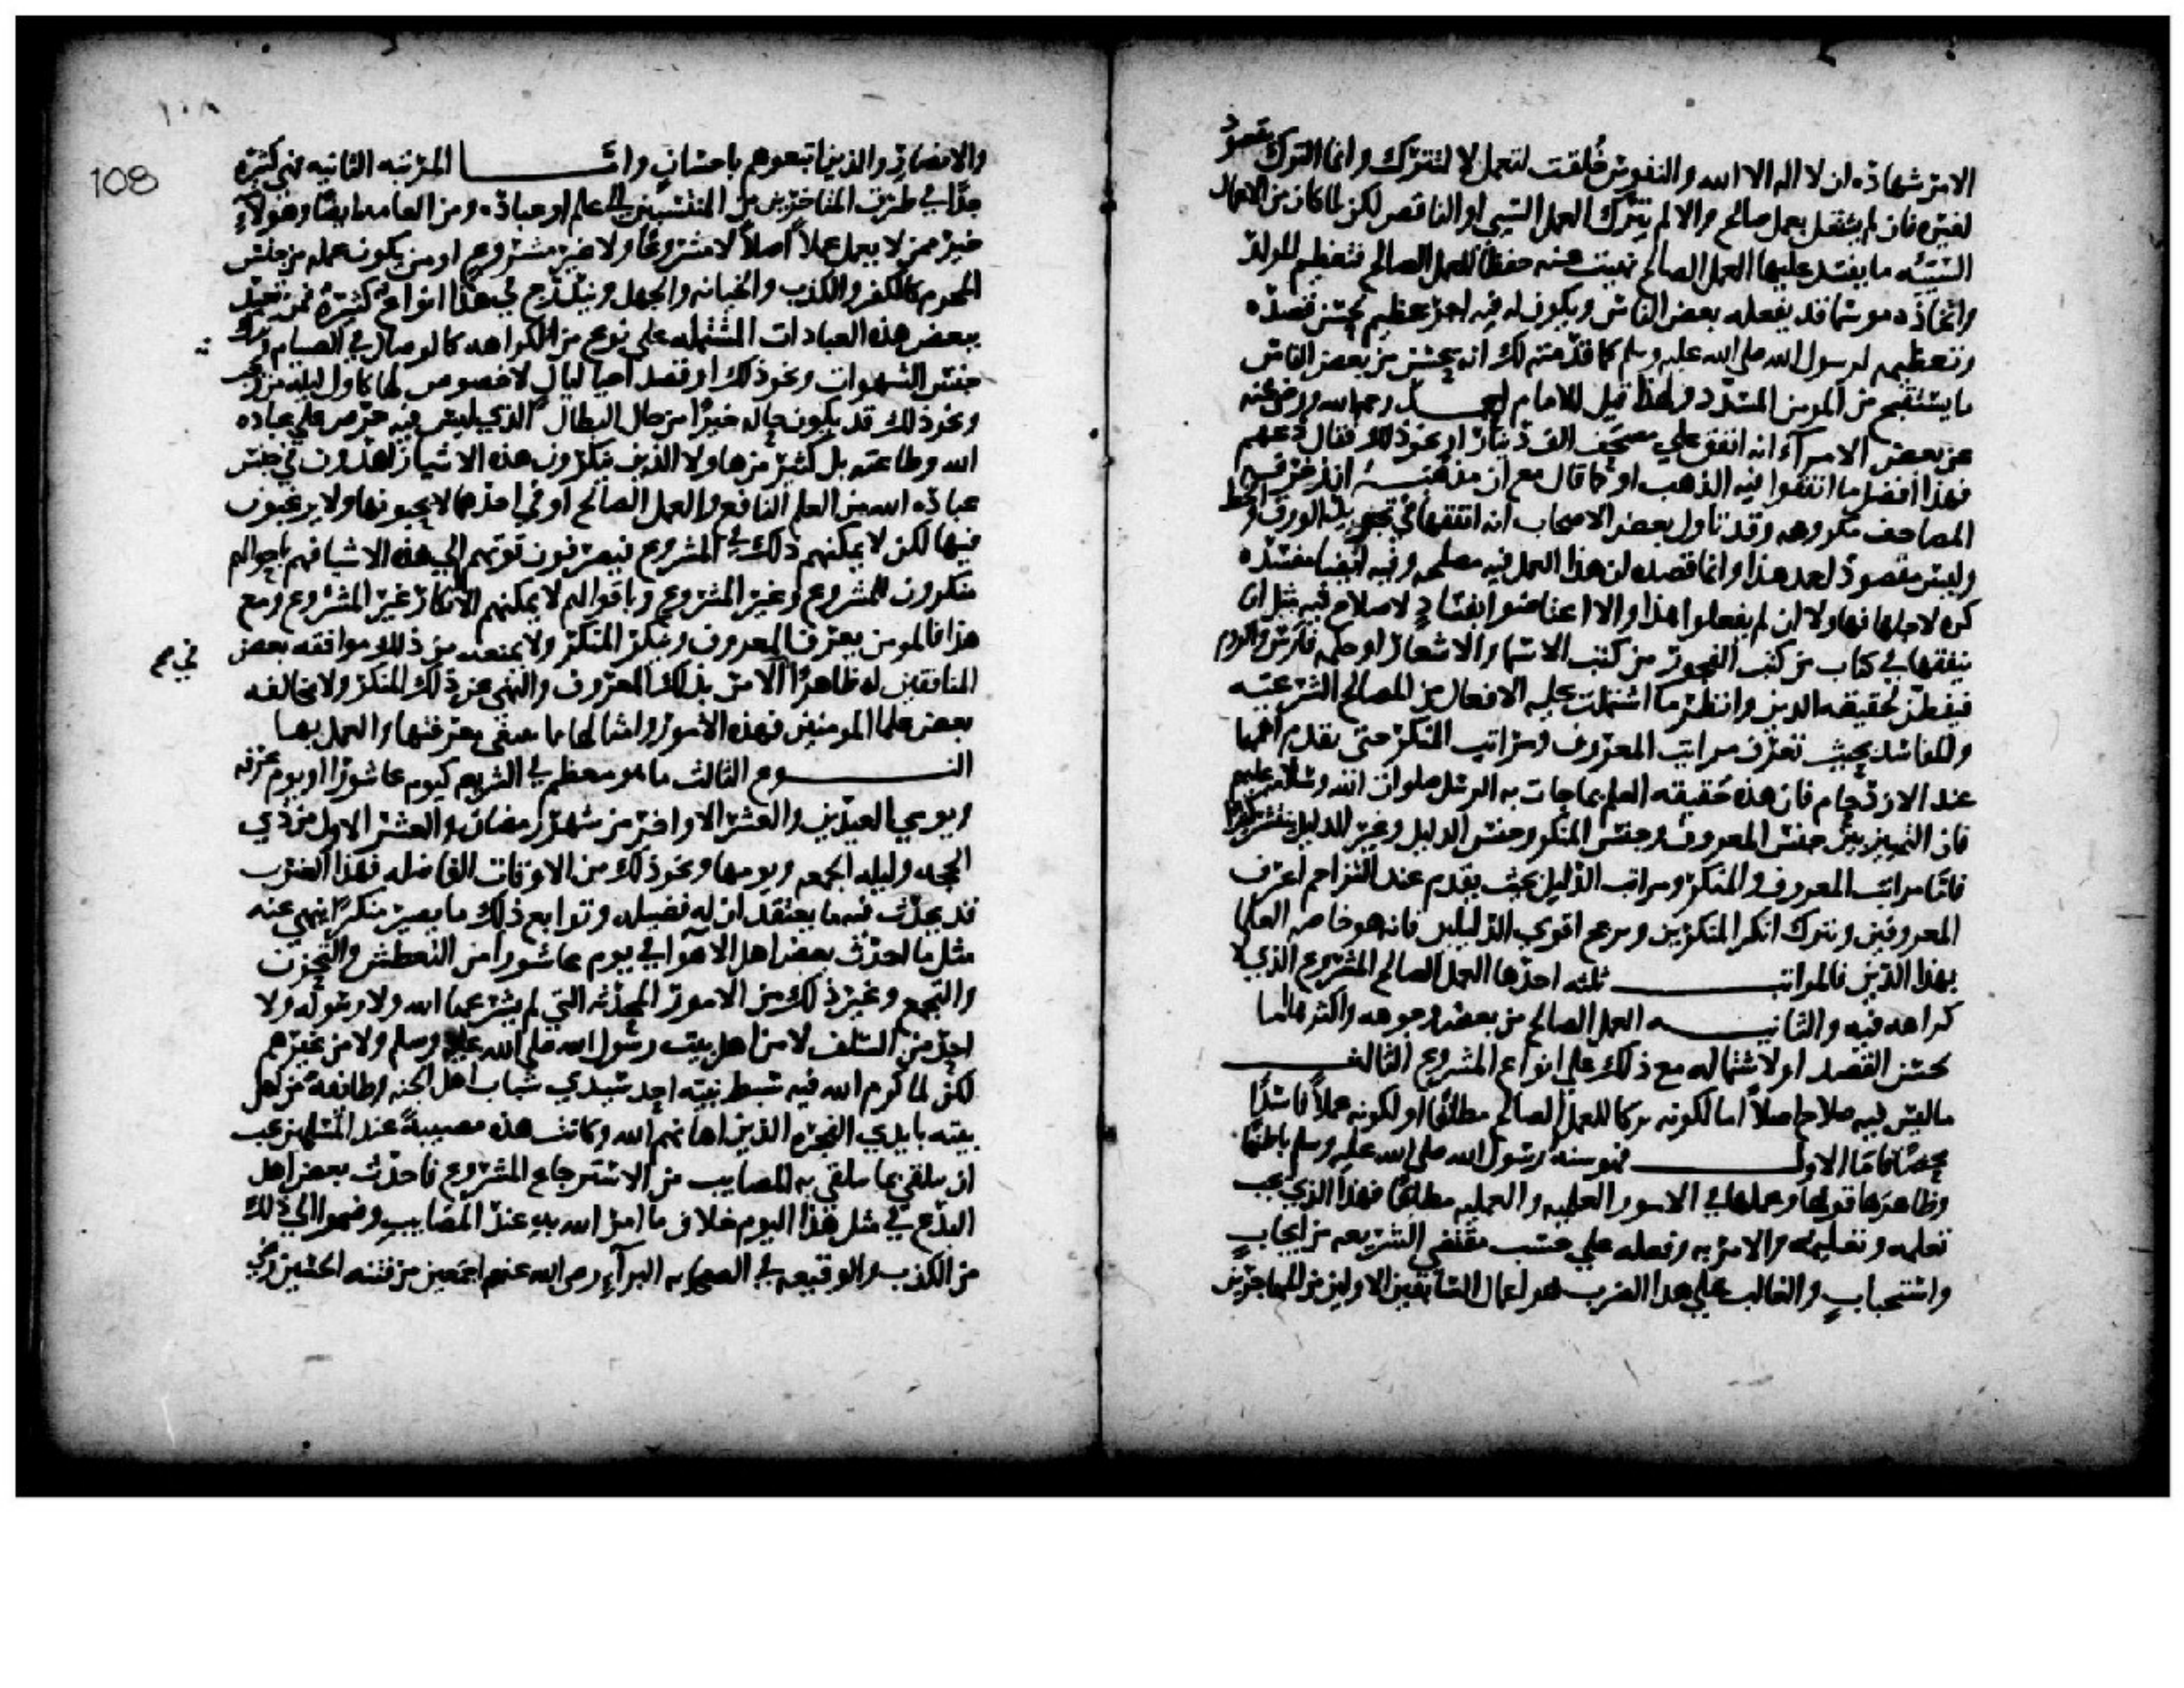 الامر شهاده ان لا اله الا الله والنفوس خلقت لتعمل لا لتترك وانما الترك مقصود
لغيره فان لم يشتغل بعمل صالح والا لم يترك العمل السيى او الناقص لكن لما كان من الاعمال
السيئه ما يفسد عليها العمل الصالح نهيت عنه حفظا للعمل الصالح فتعظيم المولد
واتخاذه موسما قد يفعله بعض الناس ويكون له فيه اجر عظيم لحسن قصده
وتعظيمه لرسول الله صلى الله عليه وسلم كما قدمته لك انه يحسن من بعض الناس
ما يستقبح من المومن المسدد ولهذا قيل للامام احمد رحمه الله ورضى عنه
عن بعض الامرآء انه انفق على مصحف الف دينار او نحو ذلك فقال دعهم
فهذا افضل ما انفقوا فيه الذهب او كما قال مع ان مذهبه ان زخرفه
المصاحف مكروهه وقد تاول بعض الاصحاب انه انفقها في تجويد الورق والخط
وليس مقصود احمد هذا وانما قصده ان هذا العمل فيه مصلحه وفيه ايضا مفسده
كره لاجلها فهاولا ان لم يفعلوا هذا والا اعتاضوا بفساد لا صلاح فيه مثل ان
ينفقها في كتاب من كتب الفجور من كتب الاسمار والاشعار او حكمه فارس والروم
فيفطن لحقيقه الدين وانظر ما اشتملت عليه الافعال من المصالح الشرعيه
والمفاسد بحيث تعرف مراتب المعروف ومراتب المنكر حتى تقدم اهمها
عند الازدحام فان هذه حقيقه العلم بما جات به الرسل صلوات الله وسلامه عليهم
فان التمييز بين جنس المعروف وجنس المنكر وجنس الدليل وغير الدليل يتيسر كثيرا
فاما مراتب المعروف والمنكر ومراتب الدليل بحيث يقدم عند التزاحم اعرف
المعروفين وتترك انكر المنكرين ويرجح اقوى الدليلين فانه هو خاصه العلما
بهذا الدين فالمراتب ثلثه احدها العمل الصالح المشروع الذي لا
كراهه فيه والثانيه العمل الصالح من بعض وجوهه واكثرها اما
لحسن القصد او لاشتماله مع ذلك على انواع المشروع الثالث
ما ليس فيه صلاح اصلا اما لكونه تركا للعمل الصالح مطلقا او لكونه عملا فاسدا
محضا فاما الاول فهو سنة رسول الله صلى الله عليه وسلم باطنها
وظاهرها قولها وعملها في الامور العلميه والعمليه مطلقا فهذا الذي يجب
تعلمه وتعليمه والامر به وفعله على حسب مقتضى الشريعه من ايجاب
واستحباب والغالب على هذا الضرب هو اعمال السابقين الاولين من المهاجرين
١٠٨
108
والانصار والذين اتبعوهم باحسان واما المرتبه الثانيه فهي كثيره
جدا في طرق المتاخرين من المنتسبين الى علم او عباده ومن العامه ايضا وهؤلاء
خير ممن لا يعمل عملا اصلا لا مشروعا ولا غير مشروع او من يكون عمله من جنس
المحرم كالكفر والكذب والخيانه والجهل ويندرج في هذا انواع كثيرة فمن تعبد
ببعض هذه العبادات المشتمله على نوع من الكراهه كالوصال في الصيام وترك
جنس الشهوات ونحو ذلك او قصد احيا ليال لا خصوص لها كاول ليله من رجب
ونحو ذلك قد يكون حاله خيرا من حال البطال الذي ليس فيه حرص على عباده
الله وطاعته بل كثير من هاولا الذين ينكرون هذه الاشيا زاهدون في جنس
عباده الله من العلم النافع والعمل الصالح او في احدهما لا يحبونها ولا يرغبون
فيها لكن لا يمكنهم ذلك في المشروع فيصرفون قوتهم الى هذه الاشيا فهم باحوالهم
منكرون للمشروع وغير المشروع وباقوالهم لا يمكنهم الا انكار غير المشروع ومع
هذا فالمومن يعرف المعروف وينكر المنكر ولا يمنعه من ذلك موافقه بعض
المنافقين له ظاهرا الامر بذلك المعروف والنهي عن ذلك المنكر ولا مخالفه
في
بعض علما المومنين فهذه الامور وامثالها مما ينبغي معرفتها والعمل بها
النوع الثالث ما هو معظم في الشريعه كيوم عاشورا ويوم عرفه
ويومي العيدين والعشر الاواخر من شهر رمضان والعشر الاول من ذي
الحجه وليله الجمعه ويومها ونحو ذلك من الاوقات الفاضله فهذا الضرب
قد يحدث فيه ما يعتقد ان له فضيله وتوابع ذلك ما يصير منكرا ينهى عنه
مثل ما احدث بعض اهل الاهوا في يوم عاشورا من التعطش والتحزن
والتجمع وغير ذلك من الامور المحدثه التي لم يشرعها الله ولا رسوله ولا
احد من السلف لا من اهل بيت رسول الله صلى الله عليه وسلم ولا من غيرهم
لكن لما كرم الله فيه سبط نبيه احد سيدي شباب اهل الجنه وطائفة من اهل
بيته بايدي الفجره الذين اهانهم الله وكانت هذه مصيبة عند المسلمين يجب
ان تتلقى بما يتلقى به المصايب من الاسترجاع المشروع فاحدث بعض اهل
البدع في مثل هذا اليوم خلاف ما امر الله به عند المصايب وضموا الى ذلك
من الكذب والوقيعه في الصحابه البرآء رضى الله عنهم اجمعين من فتنه الحسين رضي